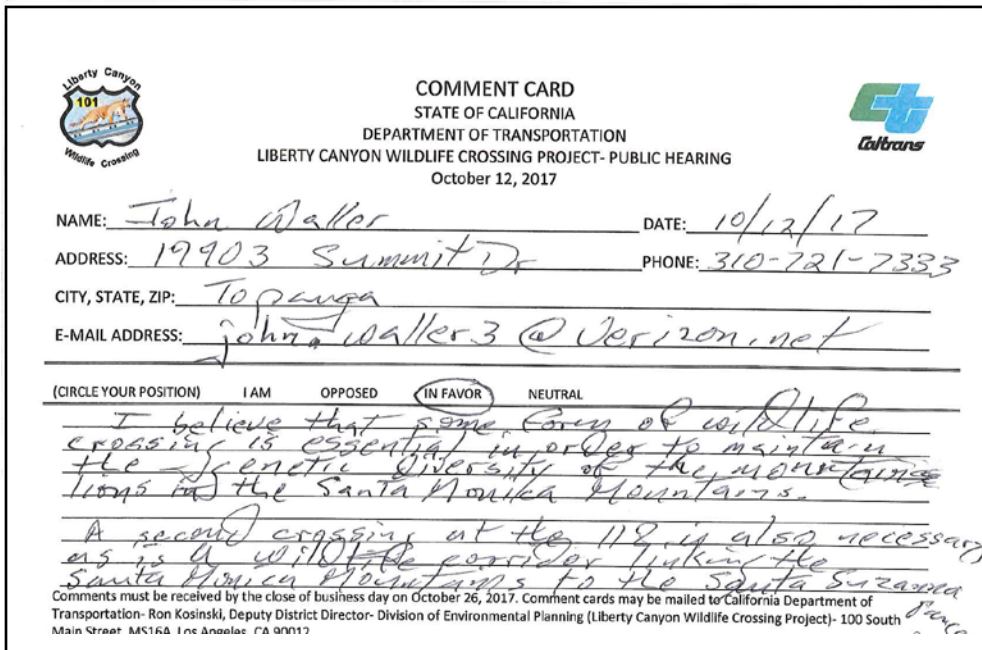 Liberty Canyon
101
Wildlife Crossing
COMMENT CARD
STATE OF CALIFORNIA
DEPARTMENT OF TRANSPORTATION
LIBERTY CANYON WILDLIFE CROSSING PROJECT- PUBLIC HEARING
October 12, 2017
Caltrans
NAME: John Waller DATE: 10/12/17
ADDRESS: 19903 Summit Dr PHONE: 310-721-7333
CITY, STATE, ZIP: Topanga
E-MAIL ADDRESS: john.waller3@verizon.net
(CIRCLE YOUR POSITION) I AM OPPOSED IN FAVOR NEUTRAL
I believe that some form of wildlife
crossing is essential in order to maintain
the genetic diversity of the mountain
lions in the Santa Monica Mountains.
A second crossing at the 118 is also necessary
as is a wildlife corridor linking the
Santa Monica Mountains to the Santa Suzanna
Comments must be received by the close of business day on October 26, 2017. Comment cards may be mailed to California Department of
Transportation- Ron Kosinski, Deputy District Director- Division of Environmental Planning (Liberty Canyon Wildlife Crossing Project)- 100 South
Main Street, MS16A, Los Angeles, CA 90012